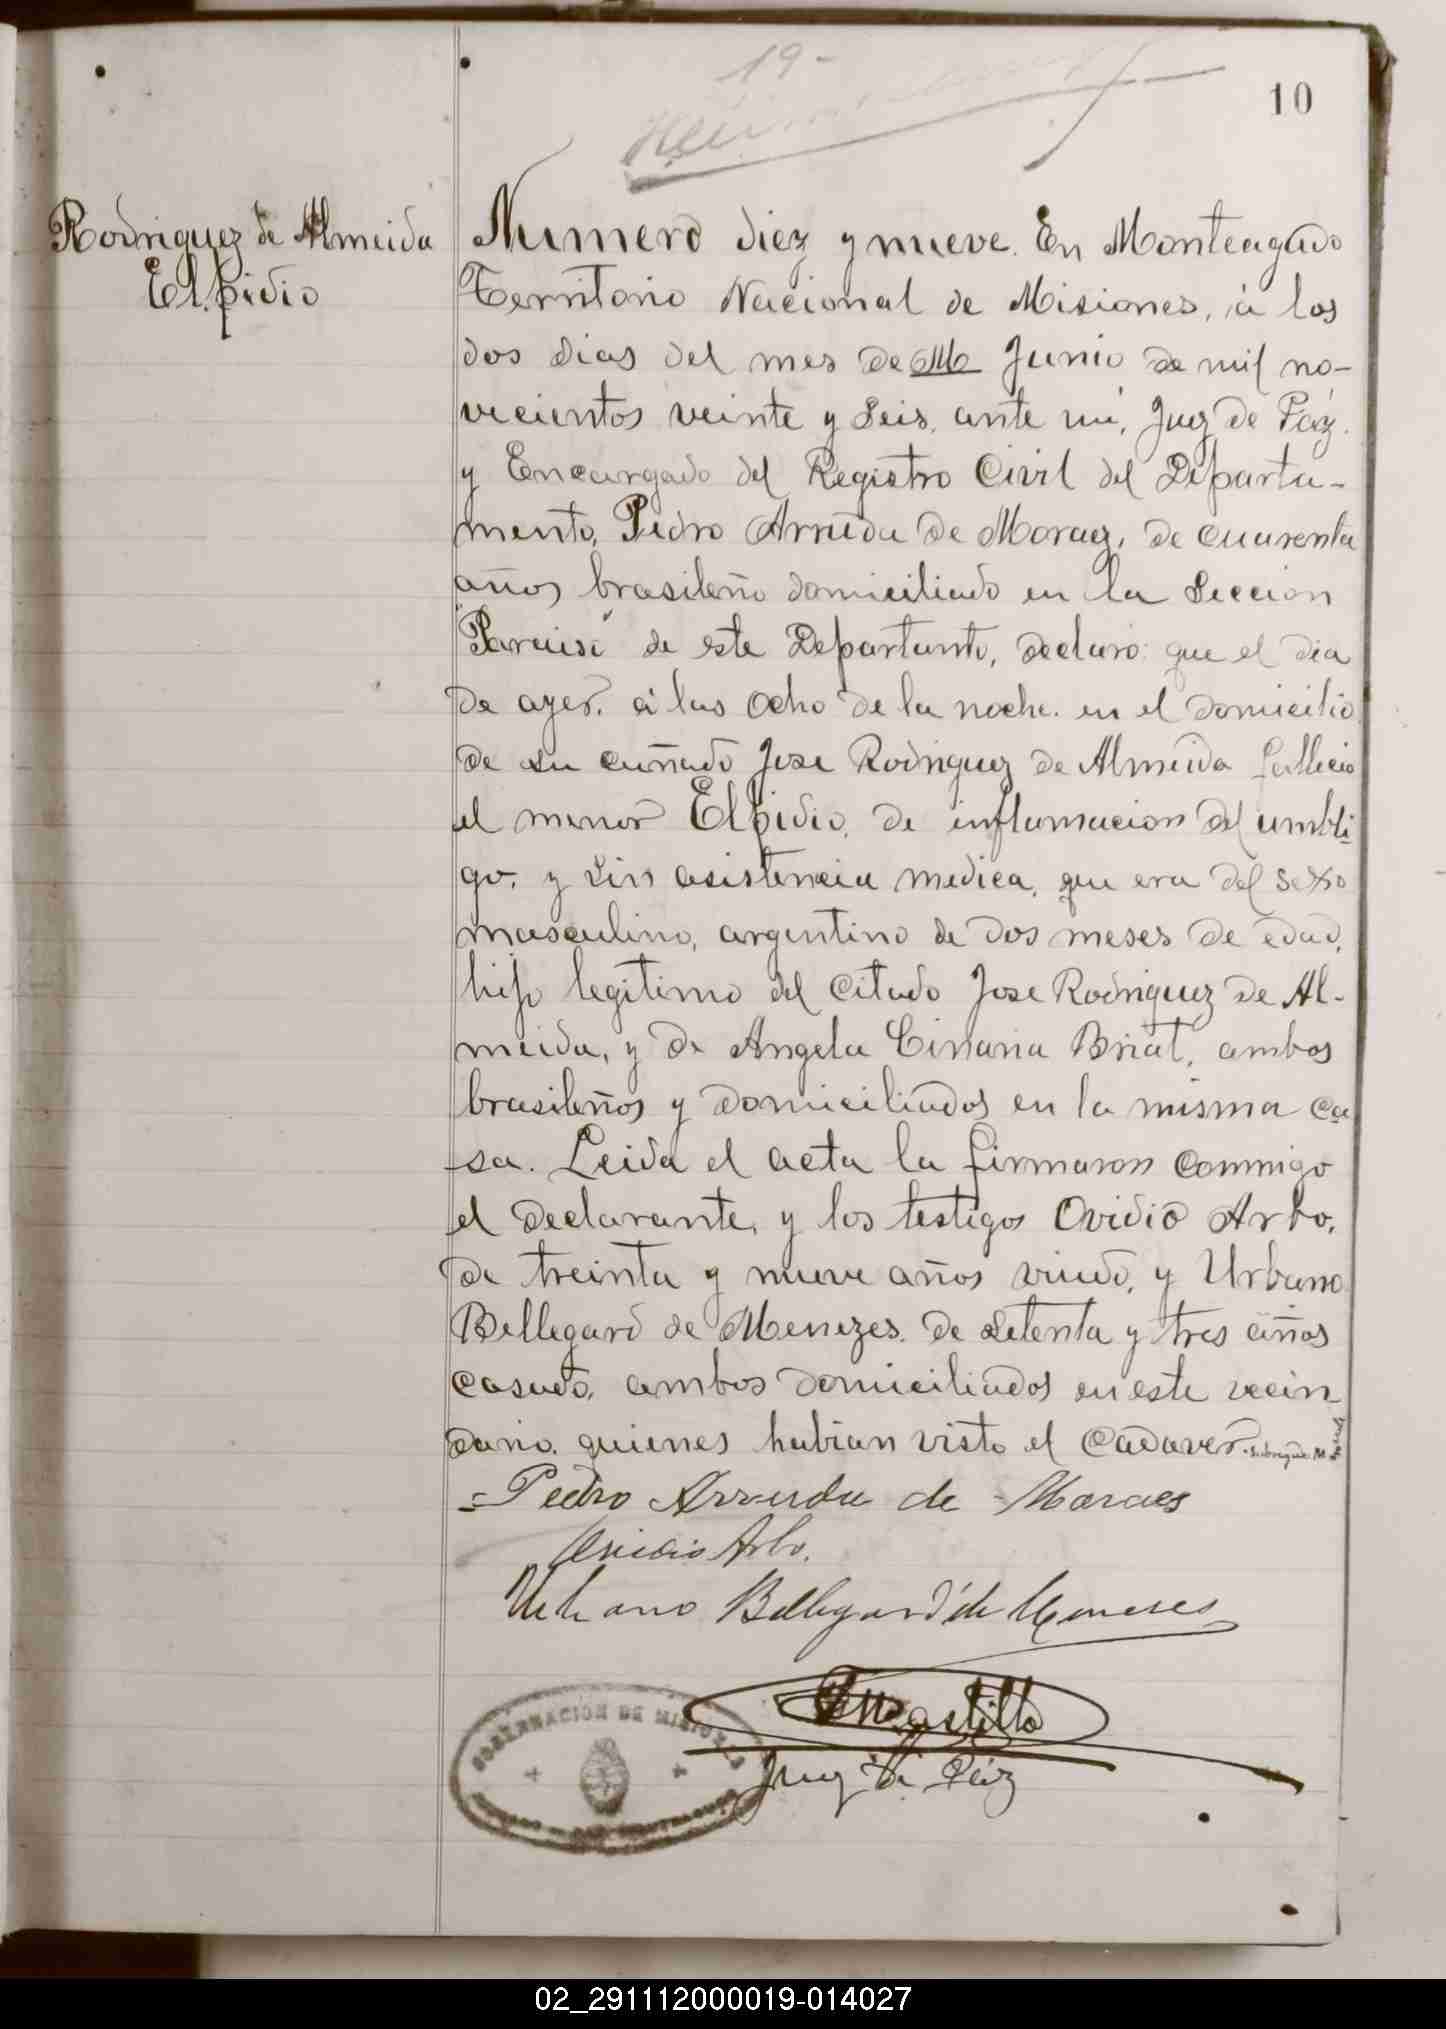 19-
10
Rodriguez de Almeida
Elpidio
Numero diez y nueve. En Monteagudo
Territorio Nacional de Misiones, á los
dos dias del mes de M Junio de mil no-
vecientos veinte y seis, ante mi, Juez de Páz
y Encargado del Registro Civil del Departa-
mento, Pedro Arruda de Moraez, de cuarenta
años brasileño domiciliado en la Seccion
"Paraiso" de este Departanto, declaró: que el dia
de ayer, á las ocho de la noche, en el domicilio
de su cuñado Jose Rodriguez de Almeida fallecio
el menor Elpidio, de inflamacion del umbli-
go, y sin asistencia medica, que era del sexo
masculino, argentino de dos meses de edad,
hijo legitimo del citado Jose Rodriguez de Al-
meida, y de Angela Briat, ambos
brasileños y domiciliados en la misma ca
sa. Leida el acta la firmaron conmigo
el declarante, y los testigos Ovidio Arbo,
de treinta y nueve años viudo, y Urbano
Bellegard de Menezes, de setenta y tres años
casado, ambos domiciliados en este vecin
dario, quienes habian visto el cadaver.
=Pedro Arruda de Moraes
Ovidio Arbo.
Urbano Bellegard de Meneses
Castillo
Juez de Páz
GOBERNACIÓN DE MISIONES
02_291112000019-014027